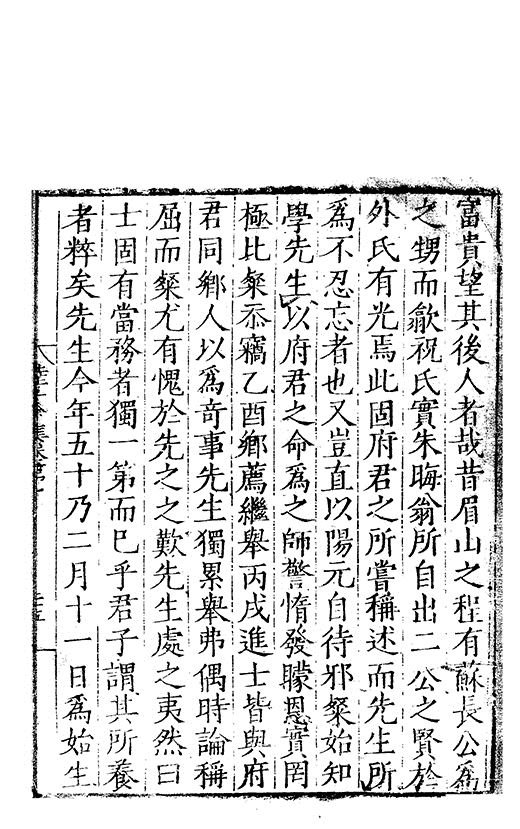 富貴望其後人者哉昔眉山之程有蘇長公為
之甥而歙祝氏實朱晦翁所自出二公之賢於
外氏有光焉此固府君之所嘗稱述而先生所
為不忍忘者也又豈直以陽元自待邪粲始知
學先生以府君之命為之師警惰發矇恩實罔
極比粲忝竊乙酉鄉薦繼舉丙戌進士皆與府
君同鄉人以為奇事先生獨累舉弗偶時論稱
屈而粲尤有愧於先之之歎先生處之夷然曰
士固有當務者獨一第而已乎君子謂其所養
者粹矣先生今年五十乃二月十一日為始生